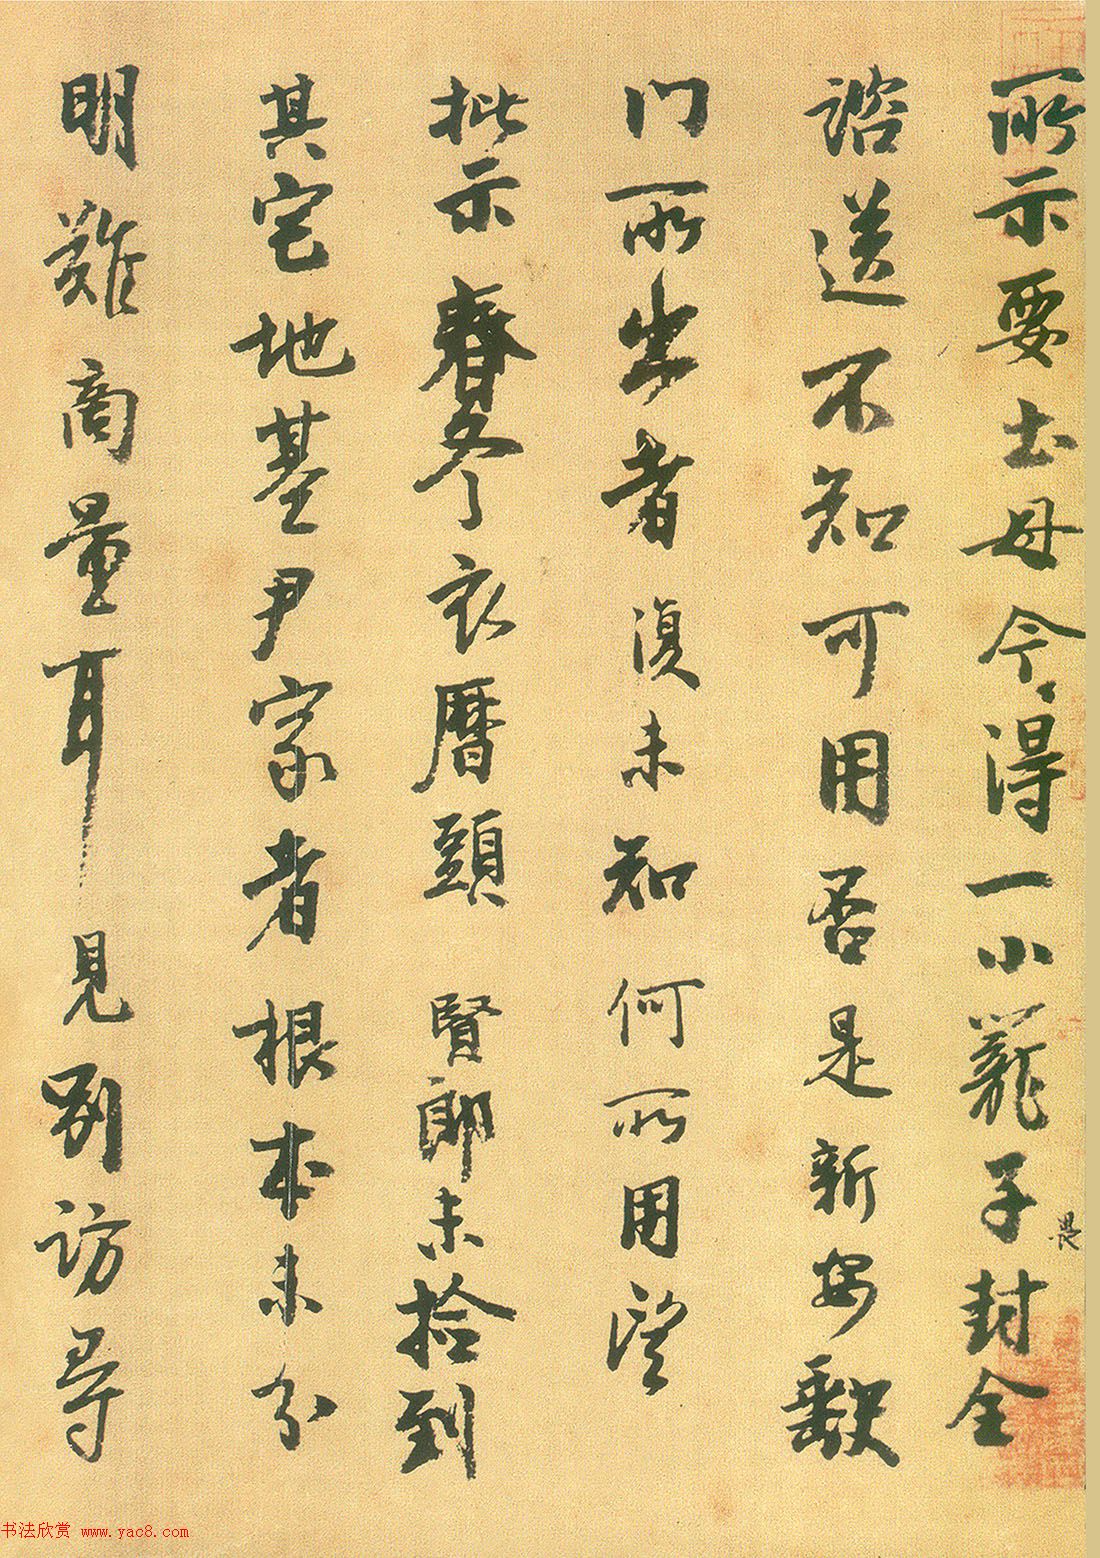 所示要土母今得一小籠子封全
畏
諮送不知可用否是新安缺
门所出者復未知何所用望
批示春冬衣曆頭 賢郎未捡到
其宅地基尹家者根本未分
明難商量耳見別訪尋
书法欣赏 www.yac8.com